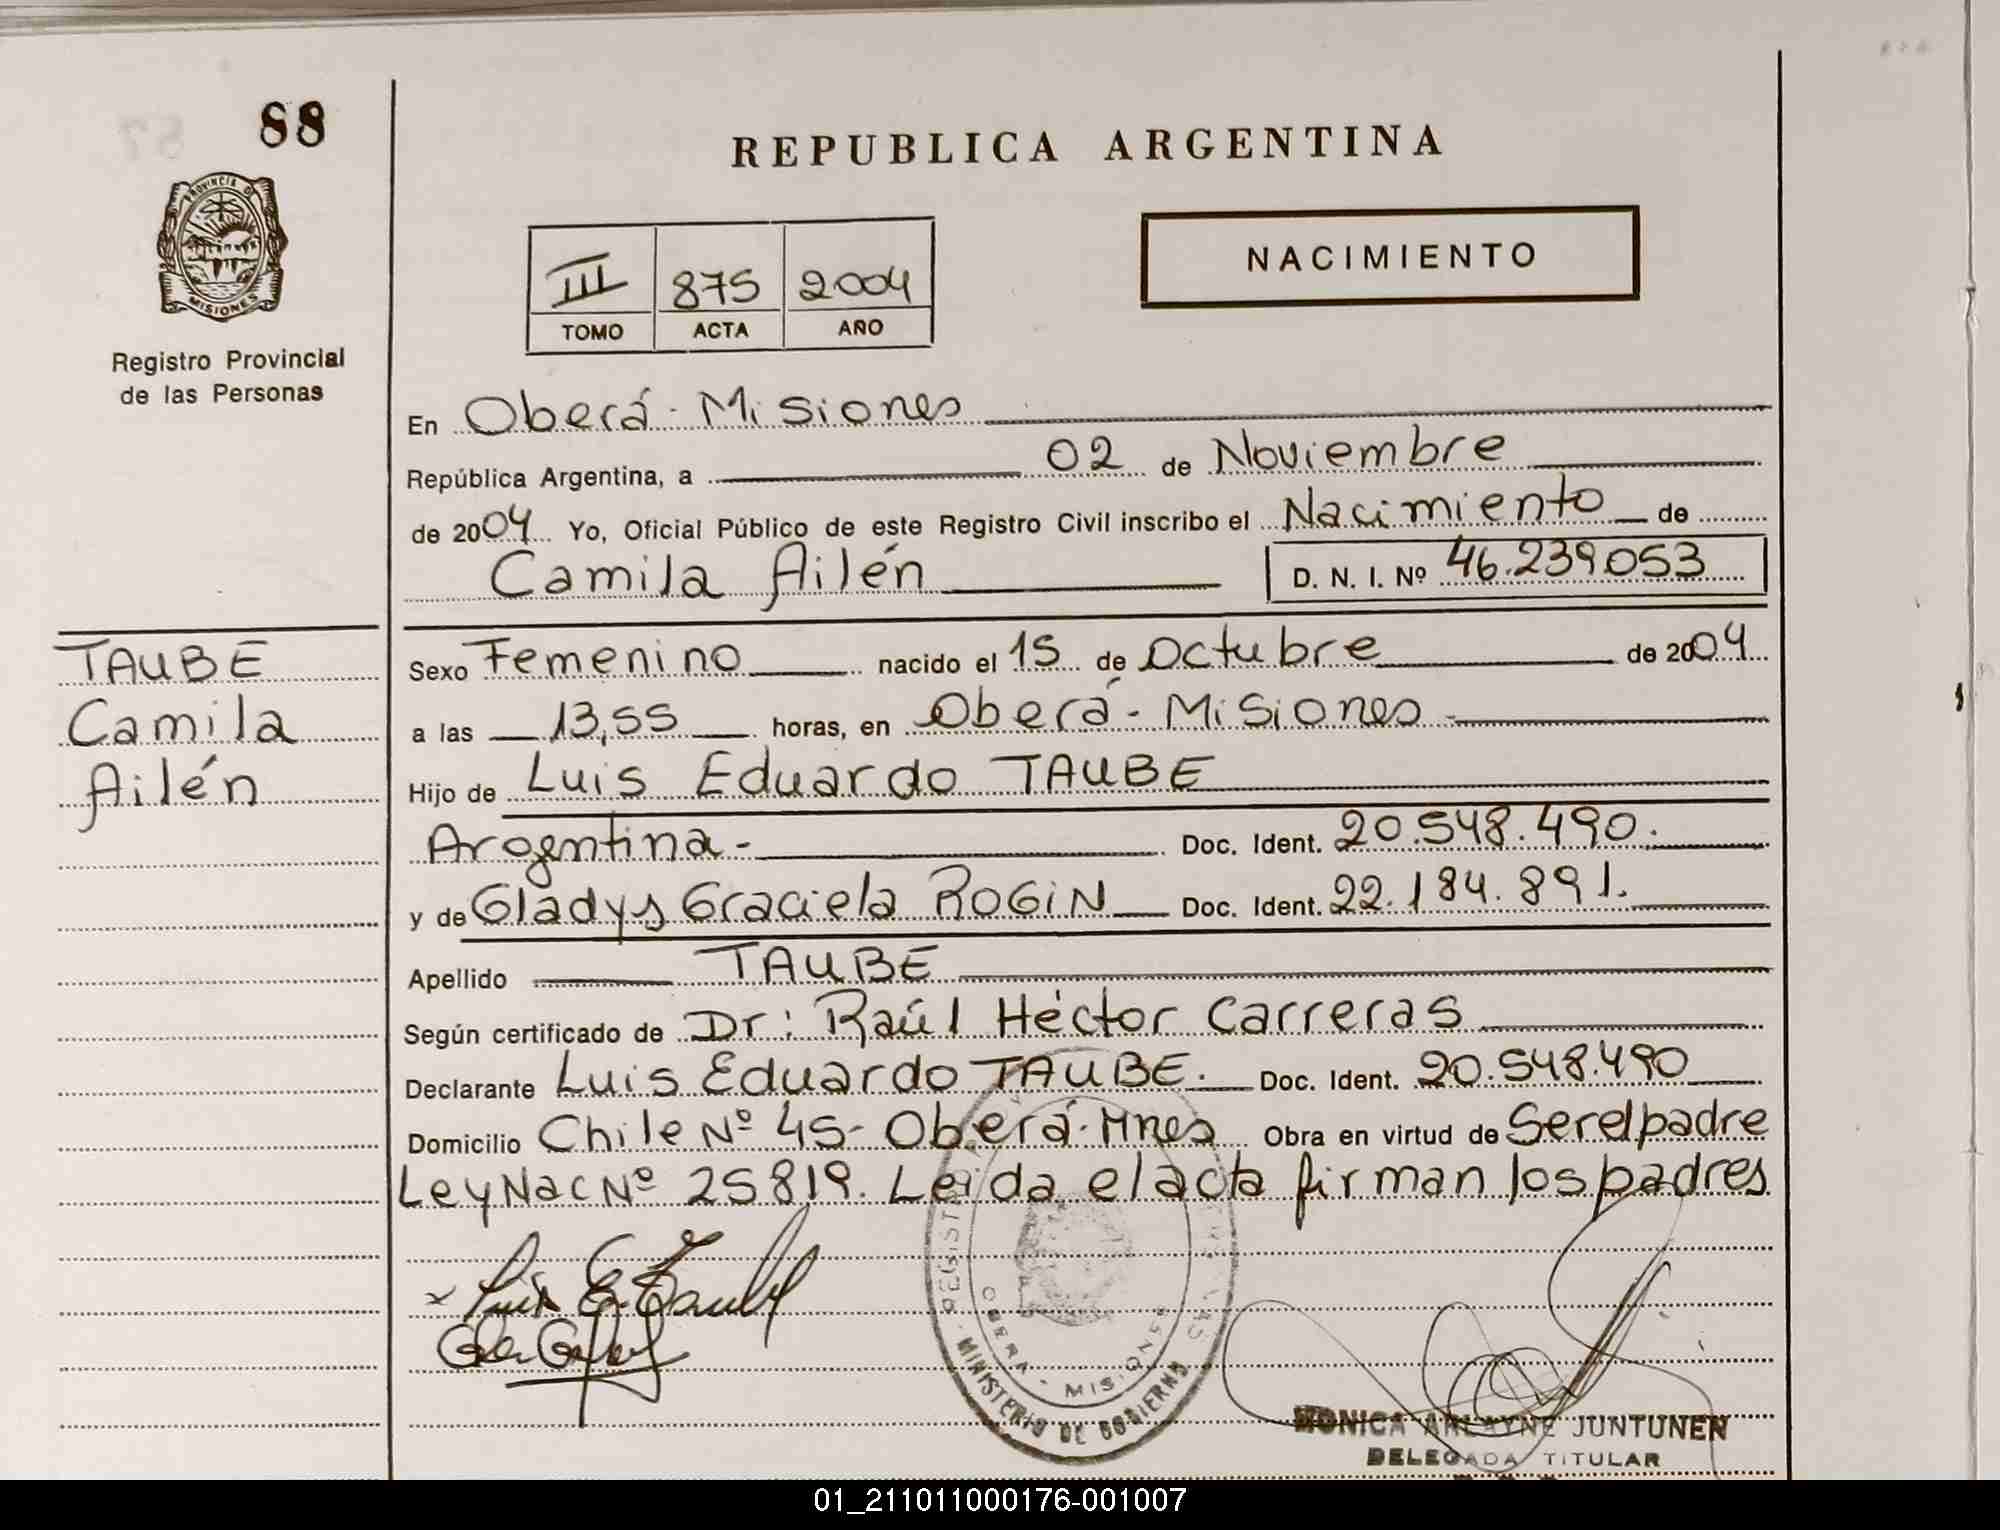 88
REPUBLICA ARGENTINA
PROVINCIA DE
MISIONES
Registro Provincial
de las Personas
III 875 2004
TOMO ACTA AÑO
NACIMIENTO
En Oberá - Misiones
República Argentina, a 02 de Noviembre
de 2004 Yo, Oficial Público de este Registro Civil inscribo el Nacimiento de
Camila Ailén D. N. I. Nº 46.239.053
TAUBE
Camila
Ailén
Sexo Femenino nacido el 15 de Octubre de 2004
a las 13,55 horas, en Oberá - Misiones
Hijo de Luis Eduardo TAUBE
Argentina - Doc. Ident. 20.548.490.
y de Gladys Graciela ROGIN Doc. Ident. 22.184.891.
Apellido TAUBE
Según certificado de Dr: Raúl Héctor Carreras
Declarante Luis Eduardo TAUBE. Doc. Ident. 20.548.490
Domicilio Chile Nº 45 - Oberá - Mnes Obra en virtud de Ser el padre
Ley Nac Nº 25819. Leida el acta firman los padres
Luis E. Taube
OBERA - MISIONES
MINISTERIO DE GOBIERNO
MONICA ARLAYNE JUNTUNEN
DELEGADA TITULAR
01_211011000176-001007